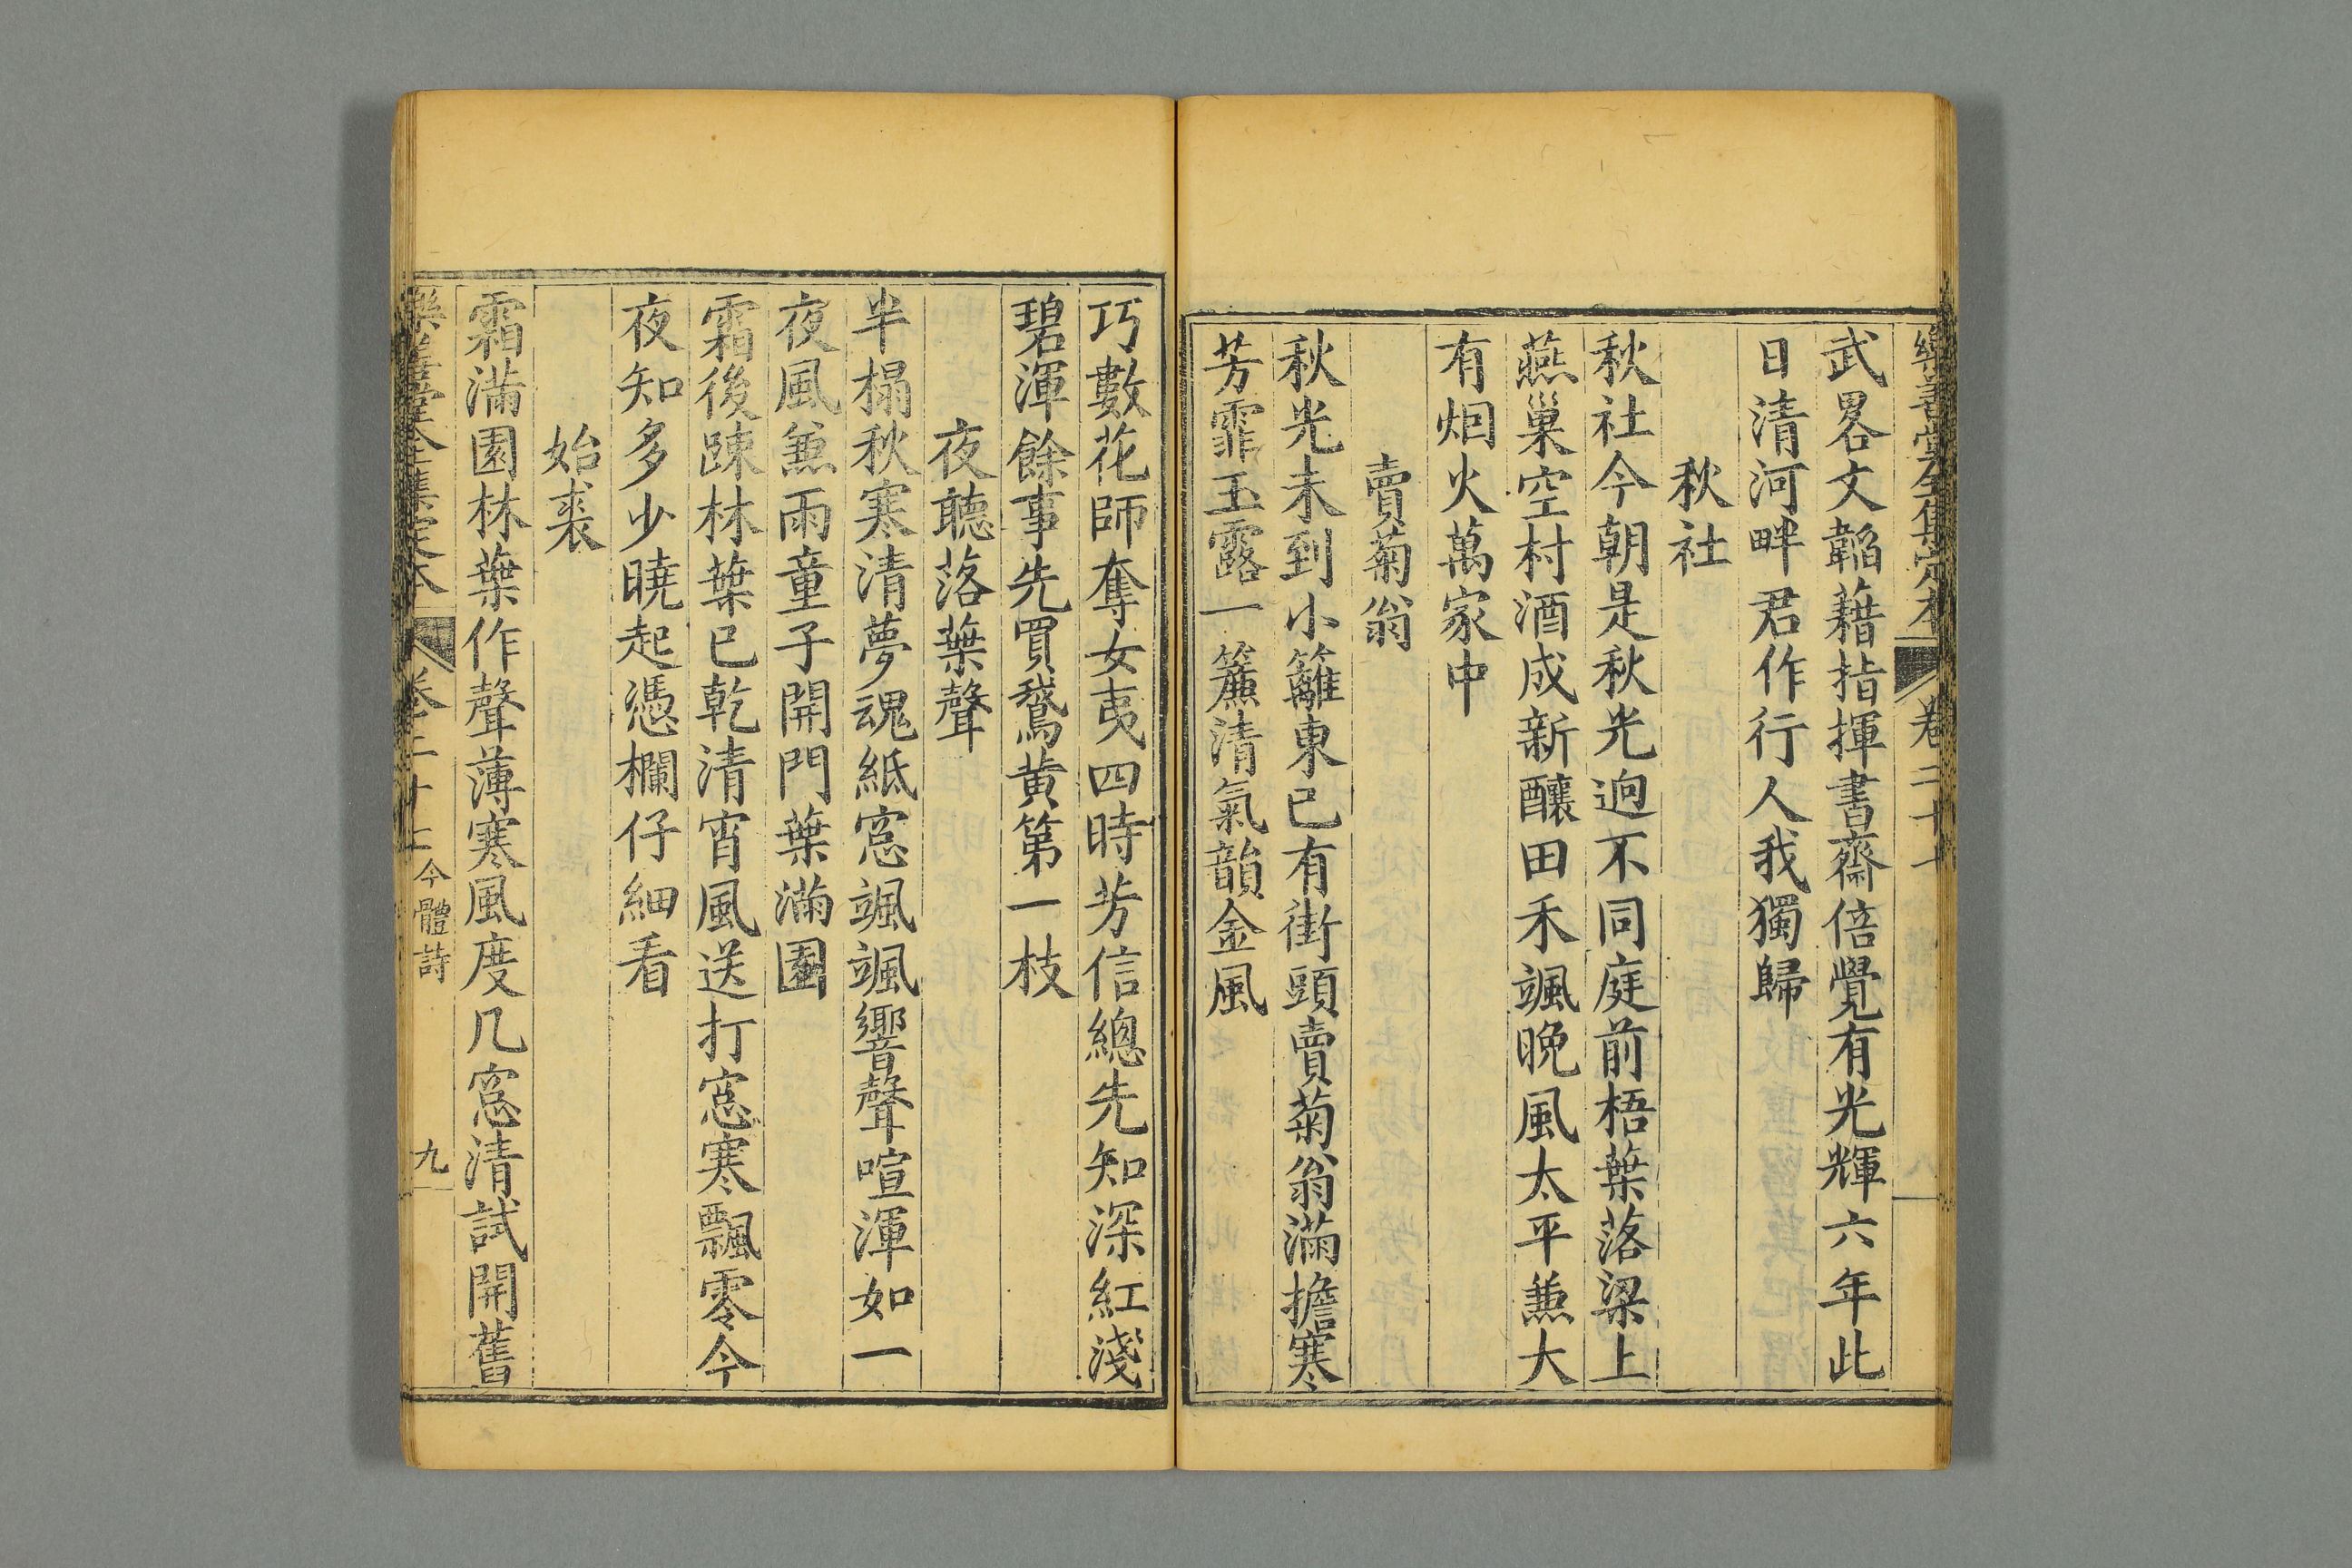 樂善堂全集定本 卷二十一
武畧文韜藉指揮書齋倍覺有光輝六年此
日清河畔君作行人我獨歸
秋社
秋社今朝是秋光逈不同庭前梧葉落梁上
燕巢空村酒成新釀田禾颯晚風太平兼大
有烟火萬家中
賣菊翁
秋光未到小籬東已有街頭賣菊翁滿擔寒
芳霏玉露一簾清氣韻金風
巧數花師奪女夷四時芳信總先知深紅淺
碧渾餘事先買鵞黄第一枝
夜聽落葉聲
半榻秋寒清夢魂紙窓颯颯響聲喧渾如一
夜風兼雨童子開門葉滿園
霜後踈林葉已乾清宵風送打窓寒飄零今
夜知多少曉起憑欄仔細看
始裘
霜滿園林葉作聲薄寒風度几窓清試開舊
樂善堂全集定本 卷二十二 今體詩 九